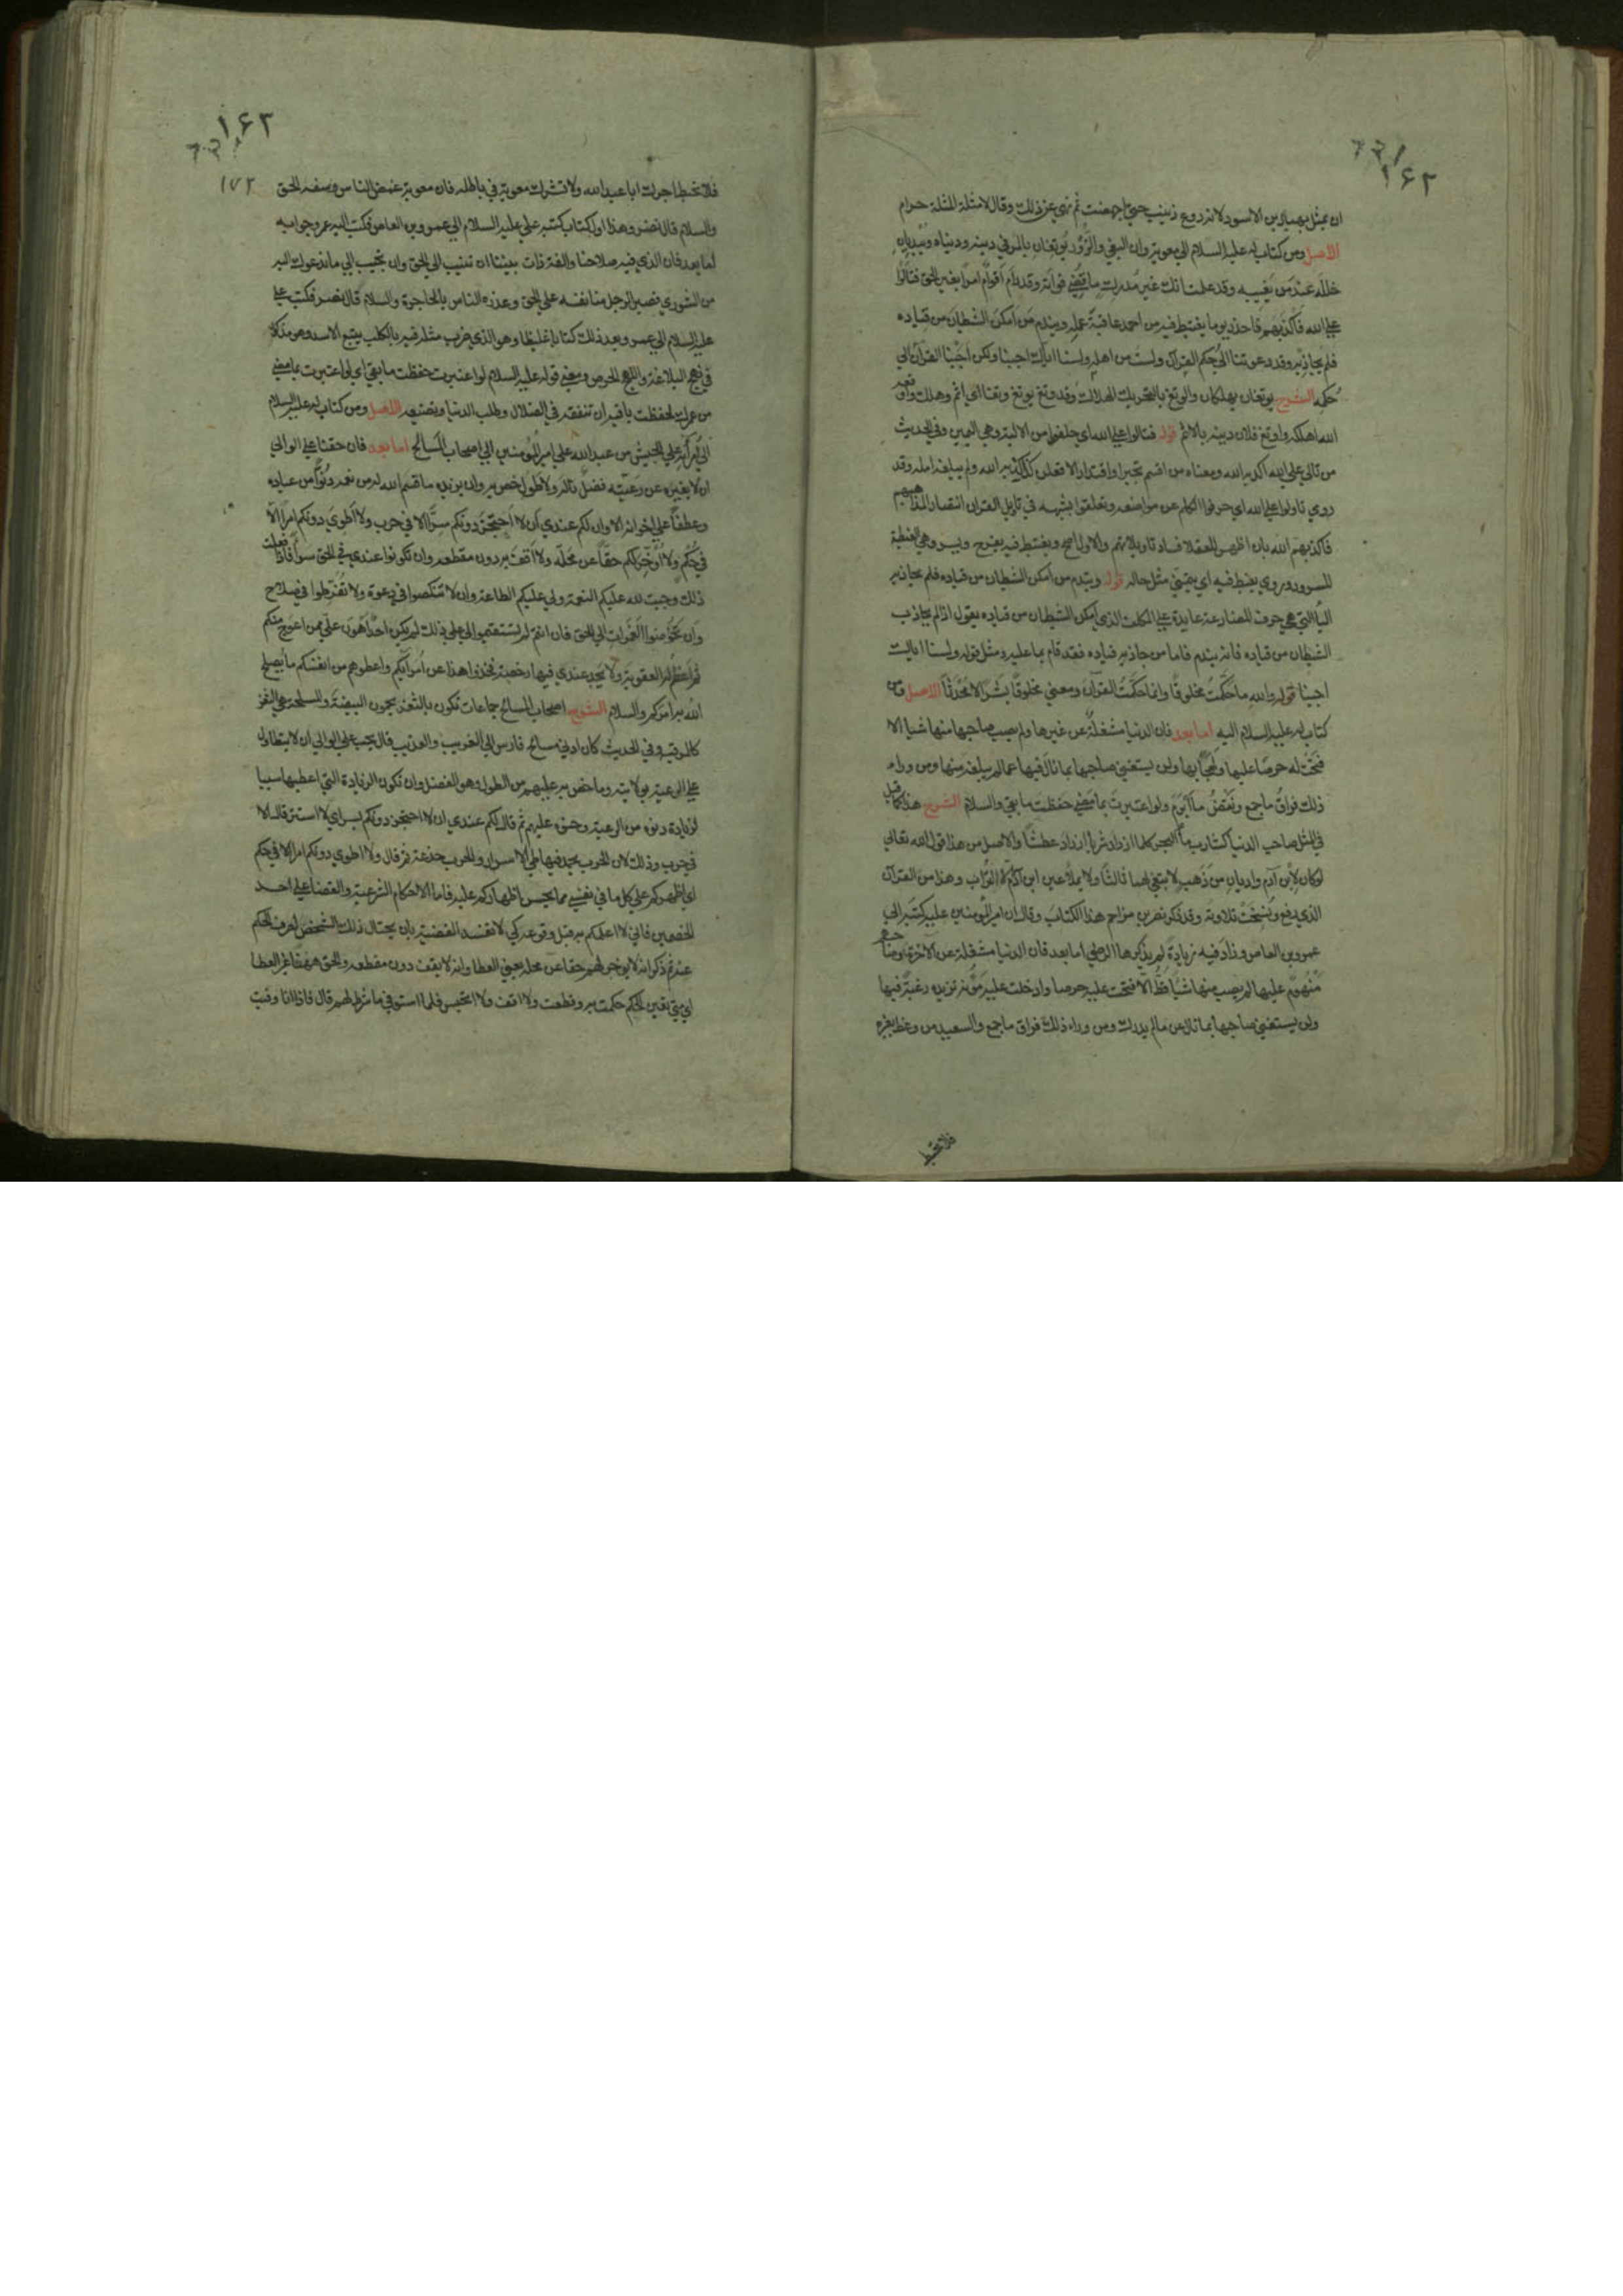 ١۶٢
ان يمثل بهبار بن الاسود لانه روع زينب حتى اجهضت ثم نهى عن ذلك وقال لا مثلة المثلة حرام
الاصل ومن كتاب له عليه السلام الى معوية وان البغي والزُّور يُوتِغان بالمرء في دينه ودنياه ويُبديان
خلله عند من يَعيبه وقد علمت انك غير مُدرك ما قُضِي فواته وقد رام اقوامٌ امرًا بغير الحق فتألوا
على الله فأكذبهم فاحذر يوما يغتبط فيه من احمد عاقبة عمله ويندم من امكن الشيطان من قياده
فلم يجاذبه وقد دعوتنا الى حكم القرآن ولست من اهله ولسنا اياك اجبنا ولكن اجبنا القرآن الى
حكمه الشرح يوتغان يهلكان والوتغ بالتحريك الهلاك وقد وتغ يوتغ وتغا اي اثم وهلك واوتغه
الله اهلكه واوتغ فلان دينه بالاثم قوله فتالوا على الله اي حلفوا من الالية وهي اليمين وفي الحديث
من تالى على الله اكذبه الله ومعناه من اقسم تجبرا واقتدارا لافعلن كذا اكذبه الله ولم يبلغه امله وقد
روي تاولوا على الله اي حرفوا الكلم عن مواضعه وتعلقوا بشبهه في تاويل القران انتصارا لمذاهبهم
فاكذبهم الله بان اظهر للعقلا فساد تاويلاتهم والاول اصح ويغتبط فيه يفرح ويسر وهي الغبطة
السرور وروي يغبط فيه اي يتمنى مثل حاله قوله ويندم من امكن الشيطان من قياده فلم يجاذبه
اليا التي هي حرف المضارعة عايدة على المكلف الذي امكن الشيطان من قياده يقول اذا لم يجاذب
الشيطان من قياده فانه يندم فاما من جاذبه قياده فقد قام بما عليه ومثل قوله ولسنا اياك
اجبنا قوله والله ما حكّمتُ مخلوقًا وانما حكّمتُ القرآن ومعنى مخلوقًا بشرًا لا محدثًا الاصل ومن
كتاب له عليه السلام اليه اما بعد فان الدنيا مشغلةٌ عن غيرها ولم يصب صاحبها منها شيا الا
فتحت له حرصًا عليها ولهجًا بها ولن يستغني صاحبها بما نال فيها عما لم يبلغه منها ومن وراء
ذلك فراقُ ما جمع ونقضُ ما ابرم ولو اعتبرتَ بما مضى حفظتَ ما بقي والسلام الشرح هذا كما قيل
في المثل صاحب الدنيا كشارب ماء البحر كلما ازداد شربا ازداد عطشًا والاصل من هذا قول الله تعالى
لو كان لابن آدم واديان من ذهب لابتغى لهما ثالثًا ولا يملأ عين ابن آدم الا التراب وهذا من القرآن
الذي رفع ونسخت تلاوته وقد ذكر نصر بن مزاحم هذا الكتاب وقال ان امير المؤمنين عليه كتبه الى
عمرو بن العاص وزاد فيه زيادةً لم يذكرها الرضي اما بعد فان الدنيا مشغلة عن الآخرة وصاحبها
مَنْهُومٌ عليها لم يصب منها شيًا قطُّ الا فتحت عليه حرصا وادخلت عليه مؤنه تزيده رغبة فيها
ولن يستغني صاحبها بما نال عن ما لم يدرك ومن وراء ذلك فراق ما جمع والسعيد من وعظ بغيره
فلا تحبط
١۶٣
١٧٢
فلا تحبط اجرك ابا عبد الله ولا تشرك معوية في باطله فان معوية غمص الناس وسفه الحق
والسلام قال نصر وهذا اول كتاب كتبه علي عليه السلام الى عمرو بن العاص فكتب اليه عمرو جوابه
اما بعد فان الذي فيه صلاحنا والفة ذات بيننا ان تنيب الى الحق وان تجيب الى ما ندعوك اليه
من الشورى فصبر الرجل منا نفسه على الحق وعذره الناس بالمحاجزة والسلام قال نصر فكتب علي
عليه السلام الى عمرو بعد ذلك كتابا غليظا وهو الذي ضرب مثله فيه بالكلب يتبع الاسد وهو مذكور
في نهج البلاغة واللهج الحرص ومعنى قوله عليه السلام لو اعتبرت حفظت ما بقي اي لو اعتبرت بما مضى
من عمرك لحفظت باقيه ان تنفقه في الضلال وطلب الدنيا وتضيعه الاصل ومن كتاب له عليه السلام
الى امرائه على الجيش من عبد الله علي امير المؤمنين الى اصحاب المسالح اما بعد فان حقًا على الوالي
ان لا يغيره عن رعيته فضلٌ ناله ولا طول خص به وان يزيده ما قسم الله له من نعمه دنوًّا من عباده
وعطفًا على اخوانه الا وان لكم عندي ان لا احتجزَ دونكم سرًّا الا في حرب ولا اطوي دونكم امرًا الا
في حكم ولا اؤخر لكم حقًا عن محله ولا اقف به دون مقطعه وان تكونوا عندي في الحق سواً فاذا فعلت
ذلك وجبت لله عليكم النعمة ولي عليكم الطاعة وان لا تنكصوا في دعوة ولا تُفَرِّطوا في صلاح
وان تخوضوا الغمرات الى الحق فان انتم لم تستقيموا لي على ذلك لم يكن احدٌ اهون علي ممن اعوج منكم
ثم اعظم له العقوبة ولا يجد عندي فيها رخصة فخذوا هذا من امرائكم واعطوهم من انفسكم ما يُصلح
الله به امركم والسلام الشرح اصحاب المسالح جماعات تكون بالثغر يحمون البيضة والمسلحة هي الثغر
كالمرقب وفي الحديث كان ادنى مسالح فارس الى العرب العذيب قال يجب على الوالي ان لا يتطاول
على الرعية بولايته وما خص به عليهم من الطول وهو الفضل وان تكون الزيادة التي اعطيها سببا
لزيادة دنوه من الرعية وحنوه عليهم ثم قال لكم عندي ان لا احتجز دونكم بسر اي لا استتر قال الا
في حرب وذلك لان الحرب يحمد فيها طي الاسرار والحرب خدعة ثم قال ولا اطوي دونكم امرا الا في حكم
اي اظهركم على كل ما في نفسي مما يحسن اظهاركم عليه فاما الاحكام الشرعية والقضا على احد
الخصمين فاني لا اعلمكم به قبل وقوعه كي لا تفسد القضية بان يحتال ذلك الشخص لصرف الحكم
عنه ثم ذكر انه لا يوخر لهم حقا عن محله يعني العطا وانه لا يقف دون مقطعه والحق هاهنا غير العطا
اي متى تعين الحكم حكمت به وقطعت ولا اقف ولا اتحبس فلما استوفى ما شرط لهم قال فاذا انا وفيت